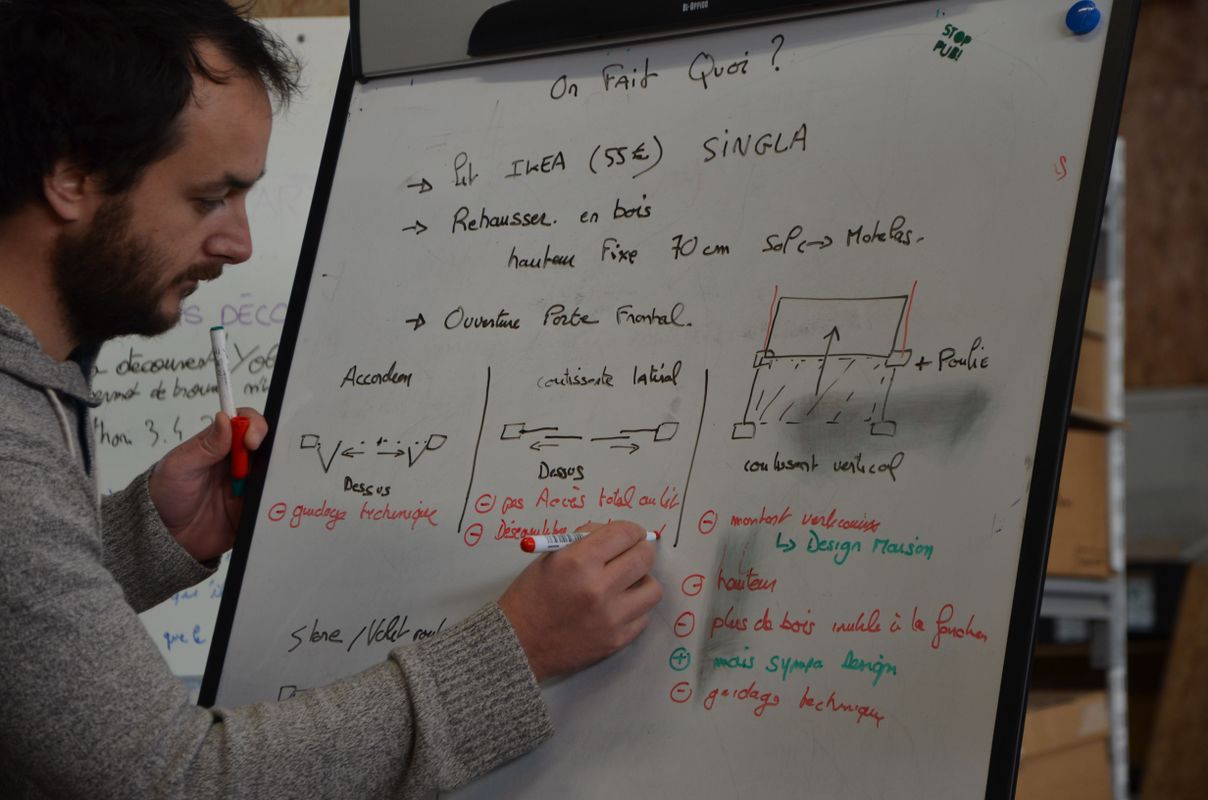 Bi-Office
STOP
PUB!
On Fait Quoi ?
→ Lit IKEA (55€) SINGLA
→ Rehausser. en bois
hauteur Fixe 70 cm Sol ↔ Matelas.
→ Ouverture Porte Frontal.
Accordeon
coulissante latéral
+ Poulie
Dessus
Dessus
coulissant vertical
⊖ guidage technique
⊖ pas Accès total au lit
⊖ Désequilibre
⊖ montant verticaux
↳ Design Maison
⊖ hauteur
⊖ plus de bois inutile à la fonction
⊕ mais sympa Design
⊖ guidage technique
Store / Volet
DÉCO
decouvert
3.4
que le